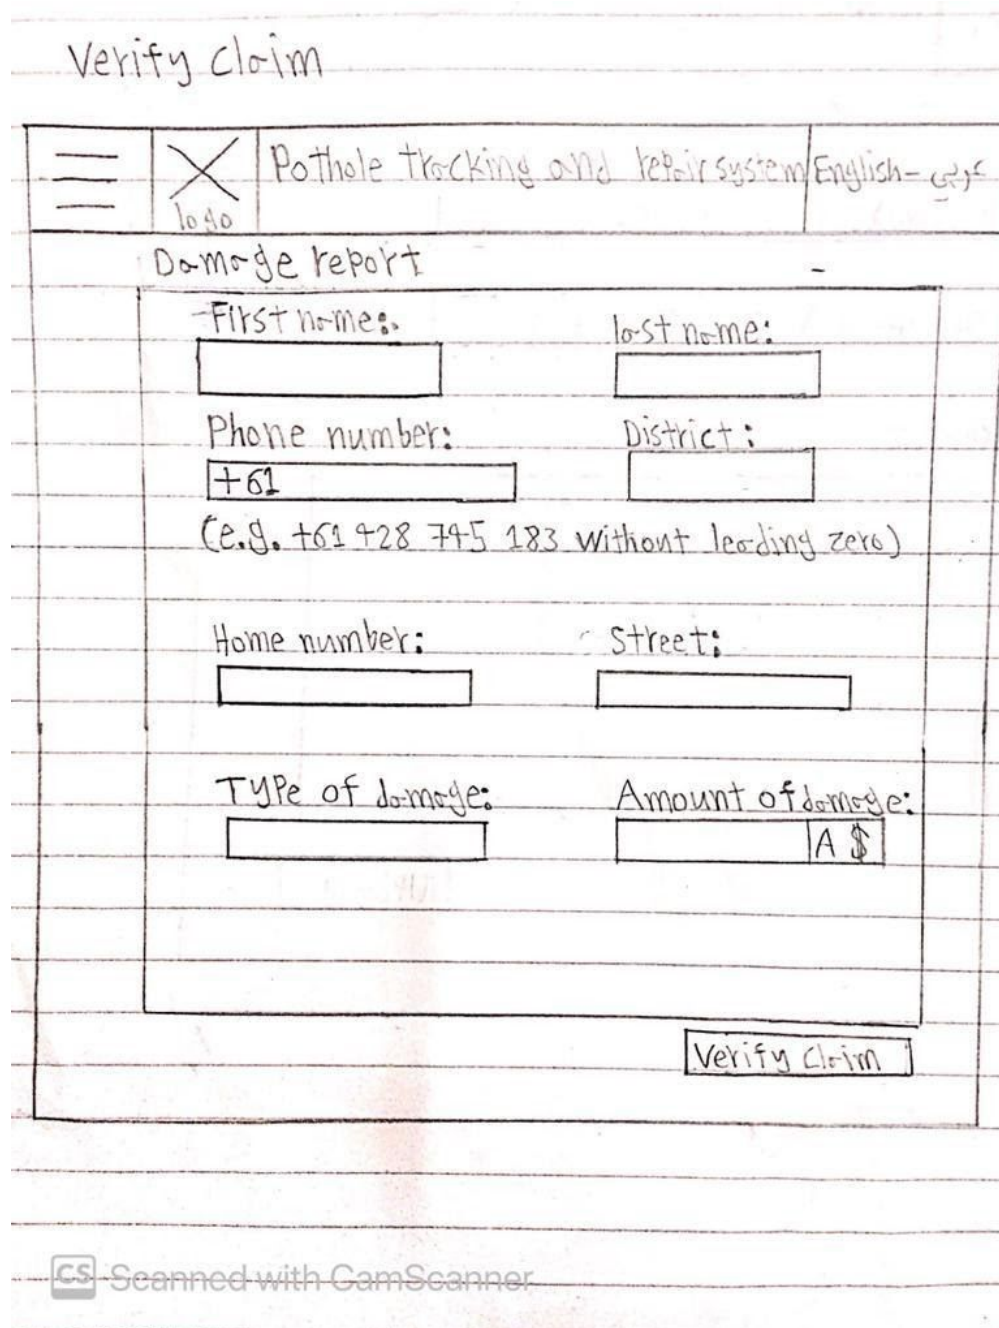 Verify claim
Pothole tracking and repair system English - عربي
logo
Damage report
First name:
last name:
Phone number:
District:
+61
(e.g. +61 428 745 183 without leading zero)
Home number:
Street:
Type of damage:
Amount of damage:
A $
Verify Claim
CS Scanned with CamScanner